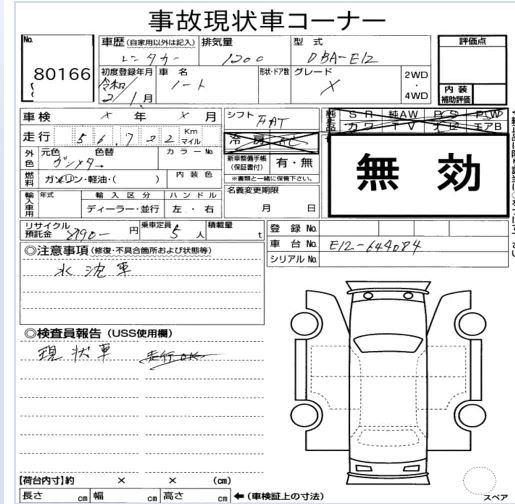 事故現状車コーナー
No. 80166
車歴 (自家用以外は記入) レンタカー
排気量 1200
型式 DBA-E12
評価点
初度登録年月 令和 2/1月
車名 ノート
形状・ドア数
グレード X
2WD・4WD
内装補助評価
車検 × 年 × 月
シフト FAT
冷房 AC
純正品 SR 純AW PS PW
カワ TV ナビ エアB
走行 56,722 Km マイル
外色 元色 色替
カラーNo
新車整備手帳(保証書付) 有・無
※書類と一緒に保管下さい。
無効
燃料 ガソリン・軽油・( )
内装色
名義変更期限
月 日
輸入車用 年式 輸入区分 ハンドル
ディーラー・並行 左・右
リサイクル預託金 8790- 円
乗車定員 5人
積載量 t
登録No.
車台No. E12-644084
シリアルNo.
◎注意事項 (修復・不具合箇所および状態等)
水沈車
◎検査員報告 (USS使用欄)
現状車 走行OK
【荷台内寸】約 × × (cm)
長さ cm 幅 cm 高さ cm ←(車検証上の寸法)
スペア